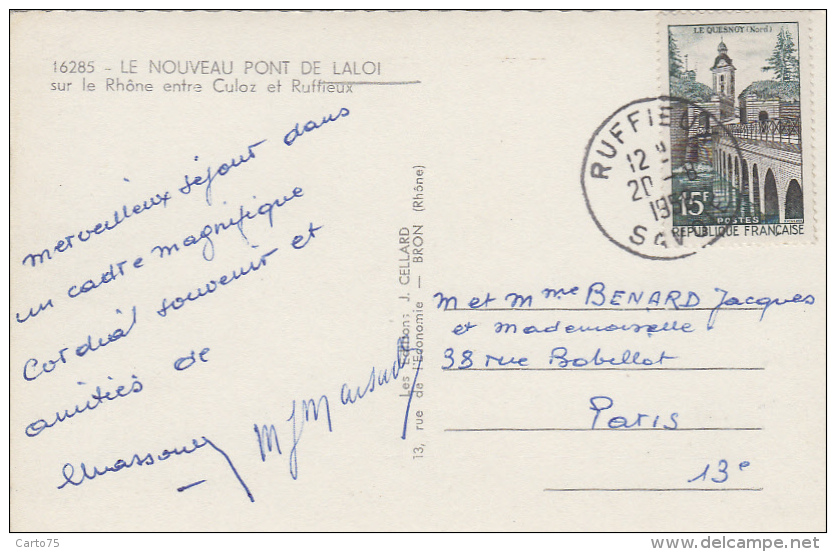 16285 - LE NOUVEAU PONT DE LALOI
sur le Rhône entre Culoz et Ruffieux
merveilleux séjour dans
un cadre magnifique
Cordial souvenir et
amitiés de
M J
Les Editions J. CELLARD
13, rue de l'Economie — BRON (Rhône)
LE QUESNOY (Nord)
15F
POSTES
REPUBLIQUE FRANÇAISE
RUFFIEUX
12 H
20 - 8
M et Mme BENARD Jacques
et Mademoiselle
38 rue Bobillot
Paris
13e
Carto75
www.delcampe.net